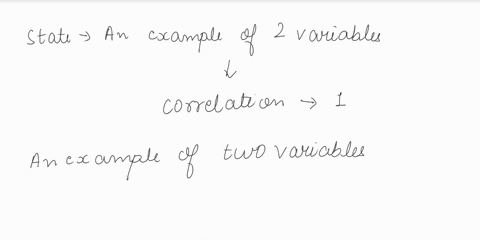 State → An example of 2 variables
↓
correlation → 1
An example of two variables